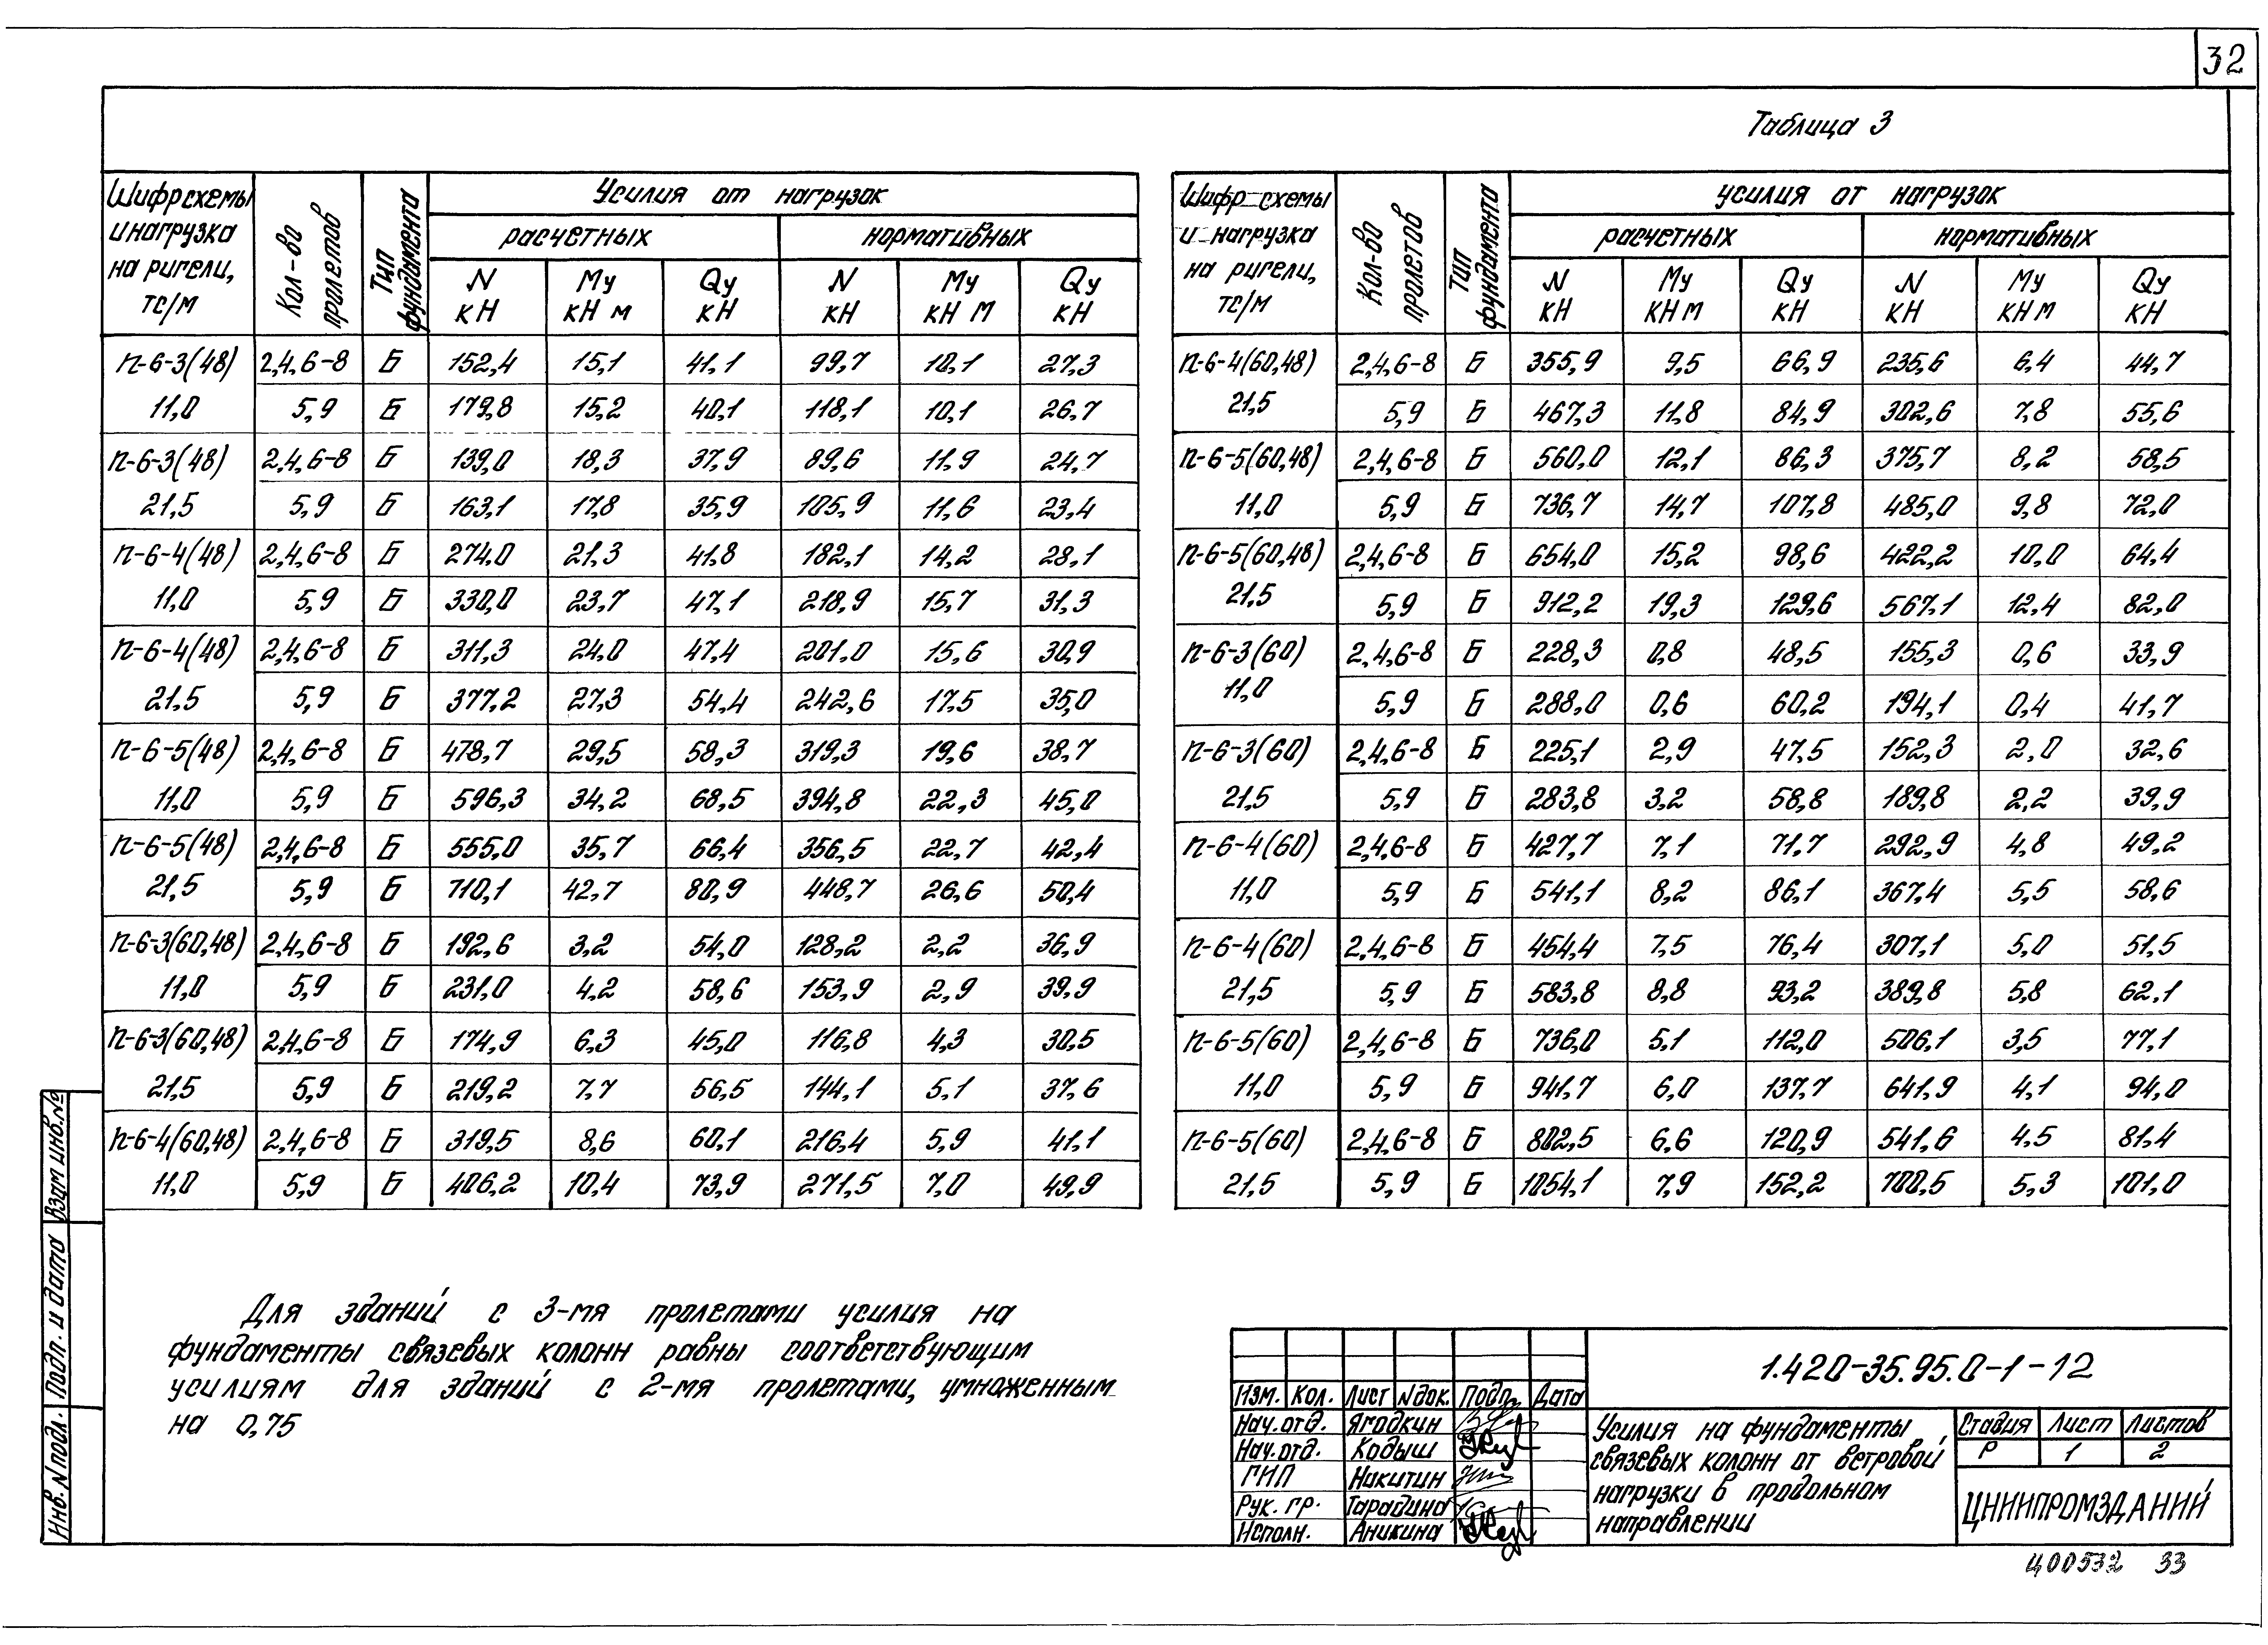 32
Таблица 3
Шифр схемы и нагрузка на ригели, тс/м | Кол-во пролетов | Тип фундамента | Усилия от нагрузок
расчетных | нормативных
N кН | Му кН м | Qу кН | N кН | Му кН м | Qу кН
п-6-3(48) 2,4,6-8 Б 152,4 15,1 41,1 99,7 10,1 27,3
11,0 5,9 Б 179,8 15,2 40,1 118,1 10,1 26,7
п-6-3(48) 2,4,6-8 Б 139,0 18,3 37,9 89,6 11,9 24,7
21,5 5,9 Б 163,1 17,8 35,9 105,9 11,6 23,4
п-6-4(48) 2,4,6-8 Б 274,0 21,3 41,8 182,1 14,2 28,1
11,0 5,9 Б 330,0 23,7 47,1 218,9 15,7 31,3
п-6-4(48) 2,4,6-8 Б 311,3 24,0 47,4 201,0 15,6 30,9
21,5 5,9 Б 377,2 27,3 54,4 242,6 17,5 35,0
п-6-5(48) 2,4,6-8 Б 478,7 29,5 58,3 319,3 19,6 38,7
11,0 5,9 Б 596,3 34,2 68,5 394,8 22,3 45,0
п-6-5(48) 2,4,6-8 Б 555,0 35,7 66,4 356,5 22,7 42,4
21,5 5,9 Б 710,1 42,7 80,9 448,7 26,6 50,4
п-6-3(60,48) 2,4,6-8 Б 192,6 3,2 54,0 128,2 2,2 36,9
11,0 5,9 Б 231,0 4,2 58,6 153,9 2,9 39,9
п-6-3(60,48) 2,4,6-8 Б 174,9 6,3 45,0 116,8 4,3 30,5
21,5 5,9 Б 219,2 7,7 56,5 144,1 5,1 37,6
п-6-4(60,48) 2,4,6-8 Б 319,5 8,6 60,1 216,4 5,9 41,1
11,0 5,9 Б 406,2 10,4 73,9 271,5 7,0 49,9
Шифр схемы и нагрузка на ригели, тс/м | Кол-во пролетов | Тип фундамента | усилия от нагрузок
расчетных | нормативных
N кН | Му кН м | Qу кН | N кН | Му кН м | Qу кН
п-6-4(60,48) 2,4,6-8 Б 355,9 9,5 66,9 235,6 6,4 44,7
21,5 5,9 Б 467,3 11,8 84,9 302,6 7,8 55,6
п-6-5(60,48) 2,4,6-8 Б 560,0 12,1 86,3 375,7 8,2 58,5
11,0 5,9 Б 736,7 14,7 107,8 485,0 9,8 72,0
п-6-5(60,48) 2,4,6-8 Б 654,0 15,2 98,6 422,2 10,0 64,4
21,5 5,9 Б 912,2 19,3 129,6 567,1 12,4 82,0
п-6-3(60) 2,4,6-8 Б 228,3 0,8 48,5 155,3 0,6 33,9
11,0 5,9 Б 288,0 0,6 60,2 194,1 0,4 41,7
п-6-3(60) 2,4,6-8 Б 225,1 2,9 47,5 152,3 2,0 32,6
21,5 5,9 Б 283,8 3,2 58,8 189,8 2,2 39,9
п-6-4(60) 2,4,6-8 Б 427,7 7,1 71,7 292,9 4,8 49,2
11,0 5,9 Б 541,1 8,2 86,1 367,4 5,5 58,6
п-6-4(60) 2,4,6-8 Б 454,4 7,5 76,4 307,1 5,0 51,5
21,5 5,9 Б 583,8 8,8 93,2 389,8 5,8 62,1
п-6-5(60) 2,4,6-8 Б 736,0 5,1 112,0 506,1 3,5 77,1
11,0 5,9 Б 941,7 6,0 137,7 641,9 4,1 94,0
п-6-5(60) 2,4,6-8 Б 802,5 6,6 120,9 541,6 4,5 81,4
21,5 5,9 Б 1054,1 7,9 152,2 700,5 5,3 101,0
Для зданий с 3-мя пролетами усилия на
фундаменты связевых колонн равны соответствующим
усилиям для зданий с 2-мя пролетами, умноженным
на 0,75
Инв. N подл. Подп. и дата Взам инв. №
1.420-35.95.0-1-12
Изм. Кол. Лист Nдок. Подп. Дата
Нач. отд. Ягодкин
Нач. отд. Кодыш
ГИП Никитин
Рук. гр. Тарадина
Исполн. Аникина
Усилия на фундаменты
связевых колонн от ветровой
нагрузки в продольном
направлении
Стадия Лист Листов
Р 1 2
ЦНИИПРОМЗДАНИЙ
Ц00532 33